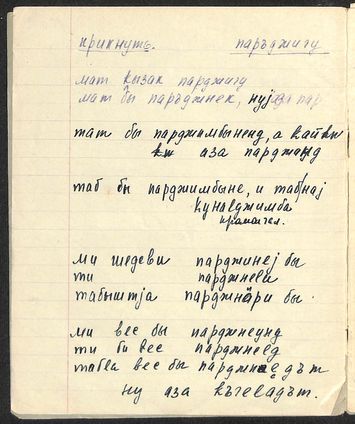 крикнуть. паръджигу
мат кызак парджигу
мат бы паръджнек, нуј аза пар
тат бы парджимбыненд, а кайкы
кы аза парджанд
таб бы парджимбыне, и табнај
куналджимба
ми шедеви парджинеј бы
ти парджнели
табыштја парджнäри бы.
ми вес бы парджнеунд
ти би вес парджнеед
табла вес бы парджнедът
ну аза къгеладът.